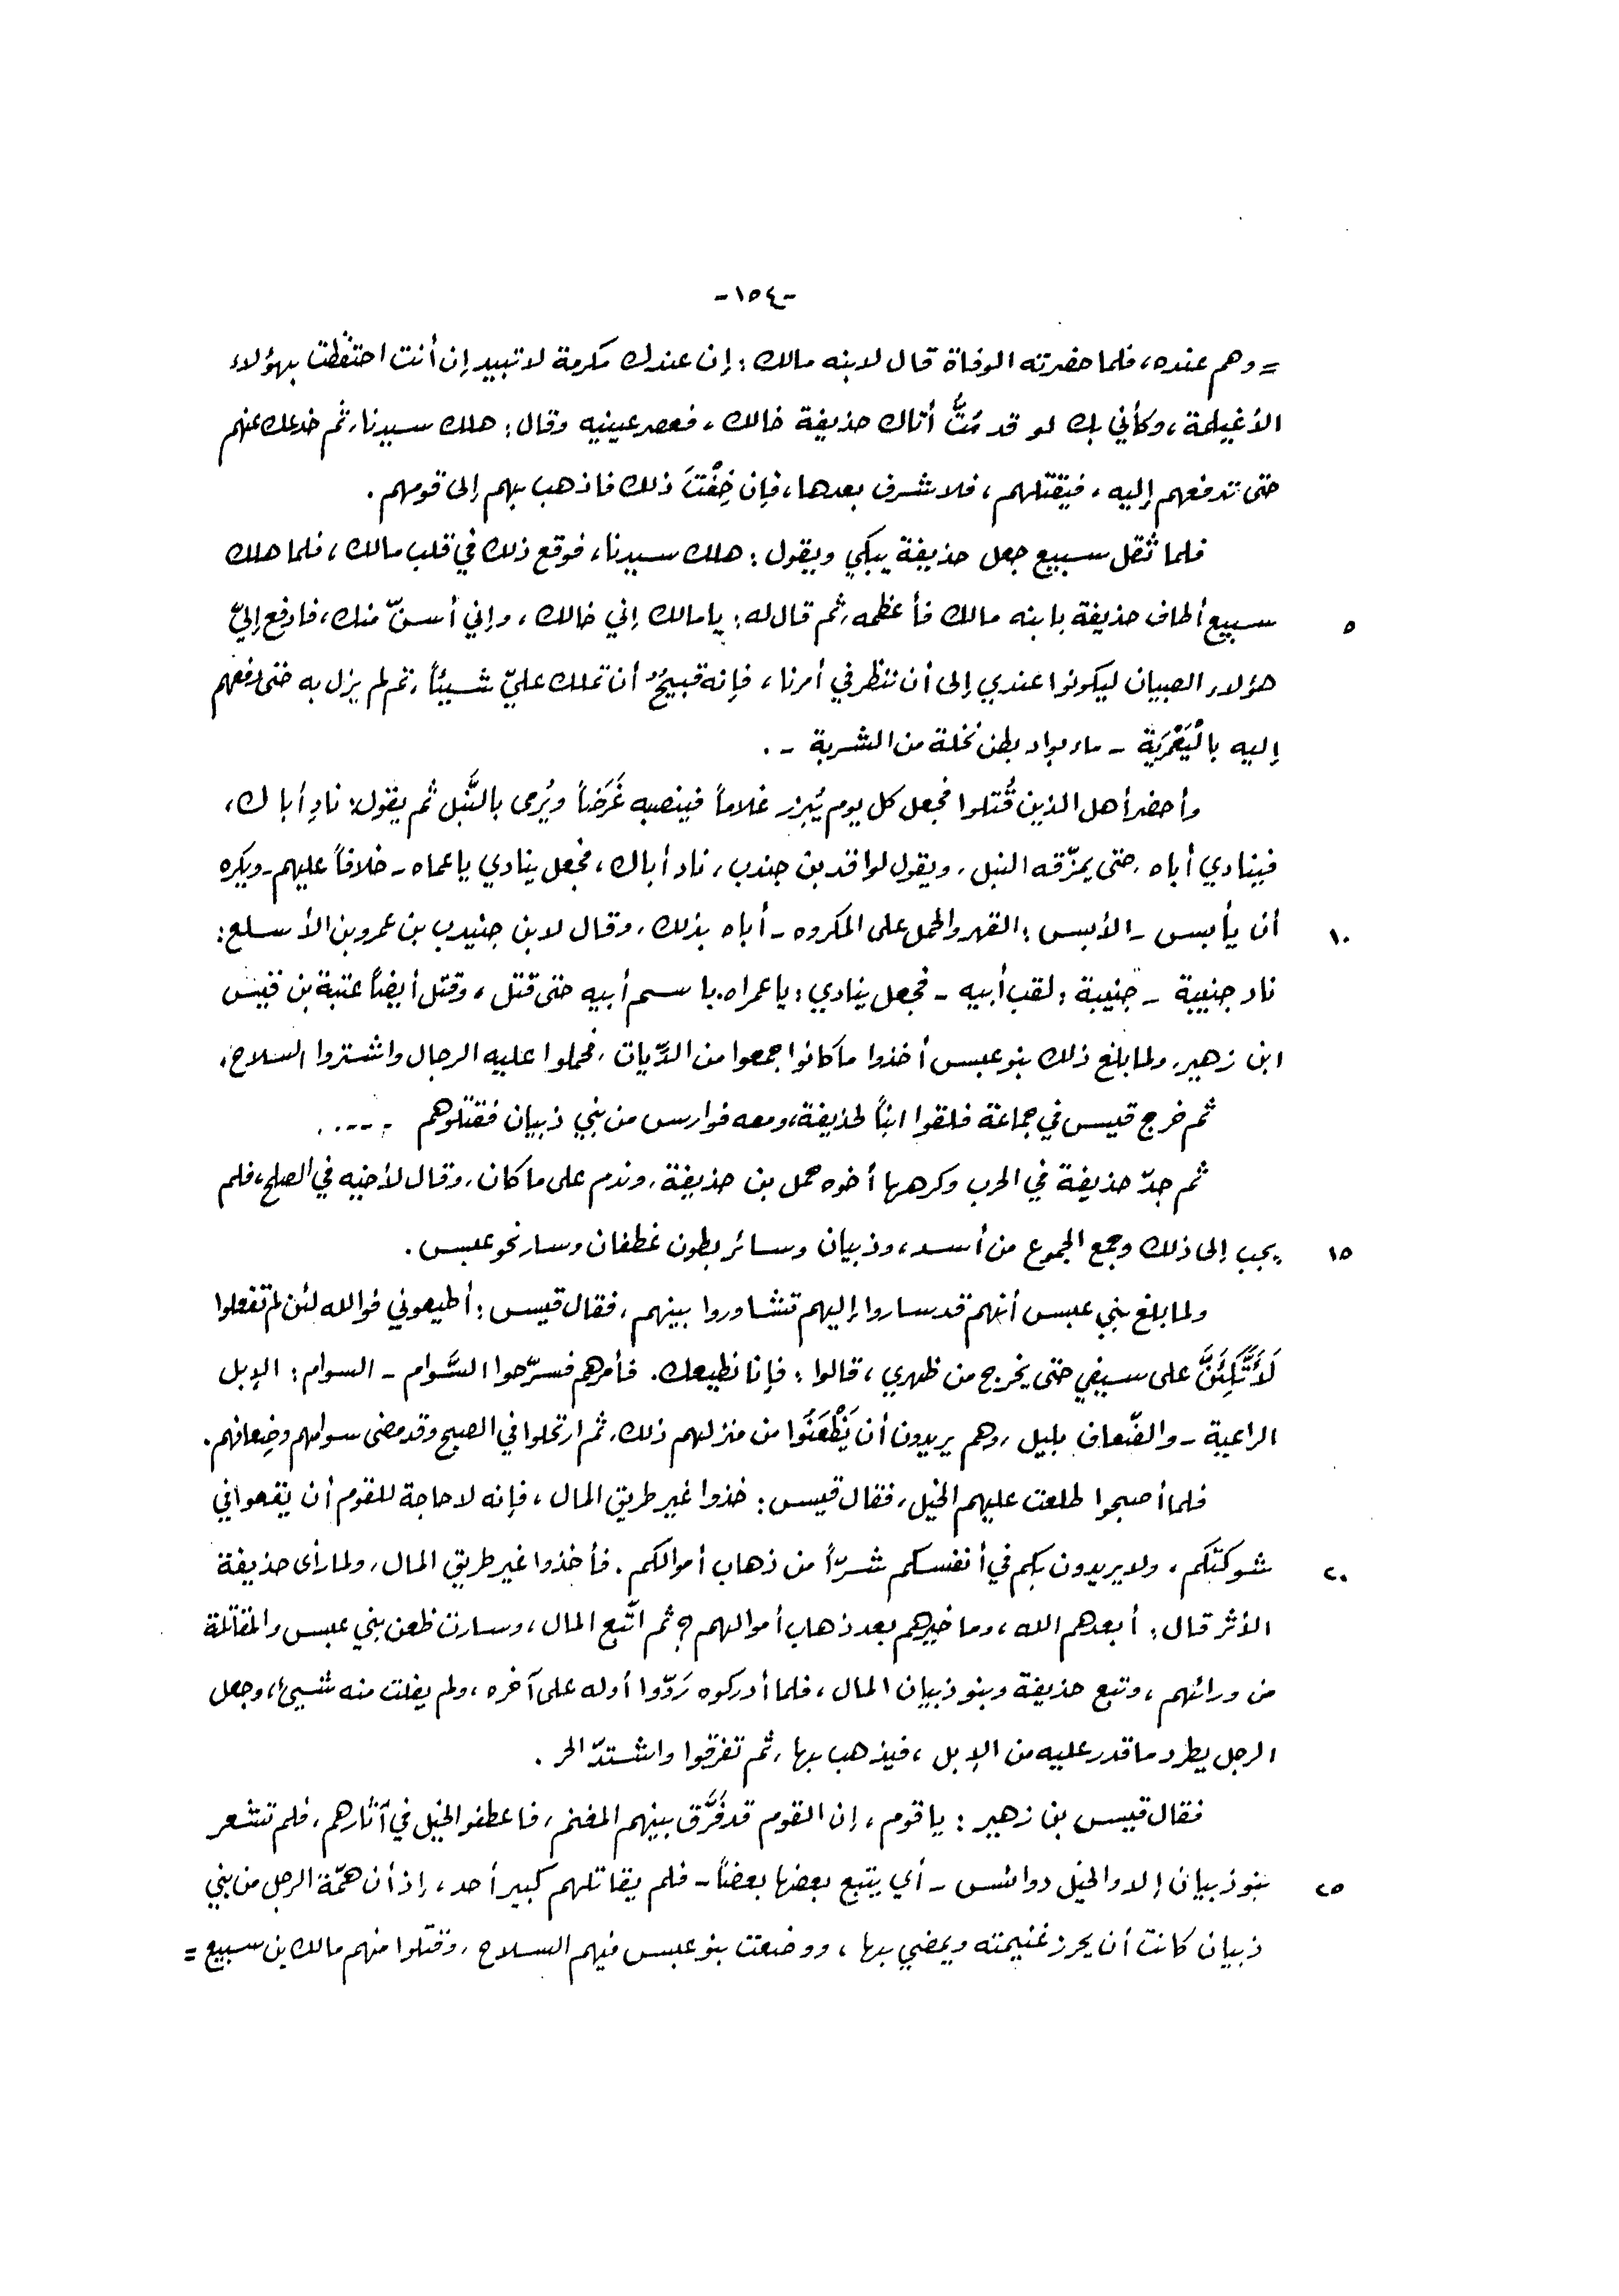 -١٥٤-
= وهم عنده، فلما حضرته الوفاة قال لابنه مالك: إن عندك مكرمة لا تبيد إن أنت احتفظت بهؤلاء
الأغيلمة، وكأني بك لو قد مُتُّ أتاك حذيفة خالك، فعصر عينيه وقال: هلك سيدنا، ثم خدعك عنهم
حتى تدفعهم إليه، فيقتلهم، فلا شرف بعدها، فإن خِفْتَ ذلك فاذهب بهم إلى قومهم.
فلما ثقل سبيع جعل حذيفة يبكي ويقول: هلك سيدنا، فوقع ذلك في قلب مالك، فلما هلك
٥ سبيع أطاف حذيفة بابنه مالك فأعظمه، ثم قال له: يا مالك إني خالك، وإني أسنّ منك، فادفع إليّ
هؤلاء الصبيان ليكونوا عندي إلى أن ننظر في أمرنا، فإنه قبيحٌ أن تملك عليّ شيئاً، ثم لم يزل به حتى دفعهم
إليه بالْيَعْمَرِيّة - ماء بواد بطن نخلة من الشربة -.
وأحضر أهل الذين قُتلوا فجعل كل يوم يُبرز غلاماً فينصبه غَرَضاً ويُرمى بالنَّبل ثم يقول: نادِ أباك،
فينادي أباه، حتى يمزّقه النبل، ويقول لواقد بن جندب، ناد أباك، فجعل ينادي يا عماه - خلافاً عليهم - ويكره
١٠ أن يأبس - الأبس: القهر والحمل على المكروه - أباه بذلك، وقال لابن جنيدب بن عمرو بن الأسلع:
ناد جنيبة - جنيبة: لقب أبيه - فجعل ينادي: يا عمراه. باسم أبيه حتى قتل، وقتل أيضاً عتبة بن قيس
ابن زهير، ولما بلغ ذلك بنو عبس أخذوا ما كانوا جمعوا من الدّيات، فحملوا عليه الرجال واشتروا السلاح،
ثم خرج قيس في جماعة فلقوا ابناً لحذيفة، ومعه فوارس من بني ذبيان فقتلوهم .....
ثم جدّ حذيفة في الحرب وكرهها أخوه حمل بن حذيفة، وندم على ما كان، وقال لأخيه في الصلح، فلم
١٥ يجب إلى ذلك وجمع الجموع من أسد، وذبيان وسائر بطون غطفان وسار نحو عبس.
ولما بلغ بني عبس أنهم قد ساروا إليهم تشاوروا بينهم، فقال قيس: أطيعوني فوالله لئن لم تفعلوا
لَأَتَّكِئَنَّ على سيفي حتى يخرج من ظهري، قالوا: فإنا نطيعك. فأمرهم فسرّحوا السَّوام - السوام: الإبل
الراعية - والضّعاف بليل، وهم يريدون أن يَظْعَنُوا من منزلهم ذلك، ثم ارتحلوا في الصبح وقد مضى سوامهم وضِعافهم.
فلما أصبحوا طلعت عليهم الخيل، فقال قيس: خذوا غير طريق المال، فإنه لا حاجة للقوم أن يقعوا في
٢٠ شوكتكم، ولا يريدون بكم في أنفسكم شرّاً من ذهاب أموالكم. فأخذوا غير طريق المال، ولما رأى حذيفة
الأثر قال: أبعدهم الله، وما خيرهم بعد ذهاب أموالهم؟ ثم اتّبع المال، وسارت ظعن بني عبس والمقاتلة
من ورائهم، وتبع حذيفة وبنو ذبيان المال، فلما أدركوه رَدّوا أوله على آخره، ولم يفلت منه شيئ، وجعل
الرجل يطرد ما قدر عليه من الإبل، فيذهب بها، ثم تفرقوا واشتدّ الحر.
فقال قيس بن زهير: يا قوم، إن القوم قد فَرَّق بينهم المغنم، فاعطفو الخيل في آثارهم، فلم تشعر
٢٥ بنو ذبيان إلا والخيل دوائس - أي يتبع بعضها بعضاً - فلم يقاتلهم كبير أحد، إذ أن همّة الرجل من بني
ذبيان كانت أن يحرز غنيمته ويمضي بها، ووضعت بنو عبس فيهم السلاح، وقتلوا منهم مالك بن سبيع =